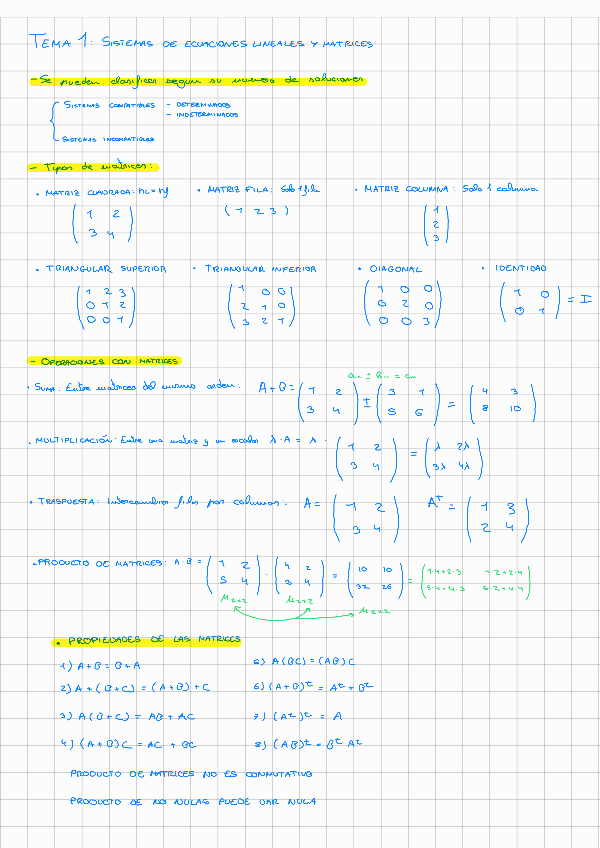 TEMA 1: SISTEMAS DE ECUACIONES LINEALES Y MATRICES
- Se pueden clasificar segun su numero de soluciones
{ SISTEMAS COMPATIBLES - DETERMINADOS
- INDETERMINADOS
SISTEMAS INCOMPATIBLES
- Tipos de matrices:
• MATRIZ CUADRADA: nc = nf • MATRIZ FILA: Solo 1 fila • MATRIZ COLUMNA: Solo 1 columna
( 1 2 ) ( 1 2 3 ) ( 1 )
( 3 4 ) ( 2 )
( 3 )
• TRIANGULAR SUPERIOR • TRIANGULAR INFERIOR • DIAGONAL • IDENTIDAD
( 1 2 3 ) ( 1 0 0 ) ( 1 0 0 ) ( 1 0 ) = I
( 0 1 2 ) ( 2 1 0 ) ( 0 2 0 ) ( 0 1 )
( 0 0 1 ) ( 3 2 1 ) ( 0 0 3 )
- OPERACIONES CON MATRICES
a₁₁ ± b₁₁ = c₁₁
• SUMA: Entre matrices del mismo orden: A + B = ( 1 2 ) ± ( 3 1 ) = ( 4 3 )
( 3 4 ) ( 5 6 ) ( 8 10 )
• MULTIPLICACIÓN: Entre una matriz y un escalar λ · A = λ · ( 1 2 ) = ( λ 2λ )
( 3 4 ) ( 3λ 4λ )
• TRASPUESTA: Intercambiar filas por columnas: A = ( 1 2 ) Aᵗ = ( 1 3 )
( 3 4 ) ( 2 4 )
• PRODUCTO DE MATRICES: A · B = ( 1 2 ) · ( 4 2 ) = ( 10 10 ) = ( 1·4+2·3 1·2+2·4 )
( 5 4 ) ( 3 4 ) ( 32 26 ) ( 5·4+4·3 5·2+4·4 )
M₂ₓ₂ M₂ₓ₂ M₂ₓ₂
• PROPIEDADES DE LAS MATRICES
1) A + B = B + A
2) A + (B + C) = (A + B) + C
3) A (B + C) = AB + AC
4) (A + B) C = AC + BC
5) A (BC) = (AB) C
6) (A + B)ᵗ = Aᵗ + Bᵗ
7) (Aᵗ)ᵗ = A
8) (AB)ᵗ = Bᵗ Aᵗ
PRODUCTO DE MATRICES NO ES CONMUTATIVO
PRODUCTO DE NO NULAS PUEDE DAR NULA